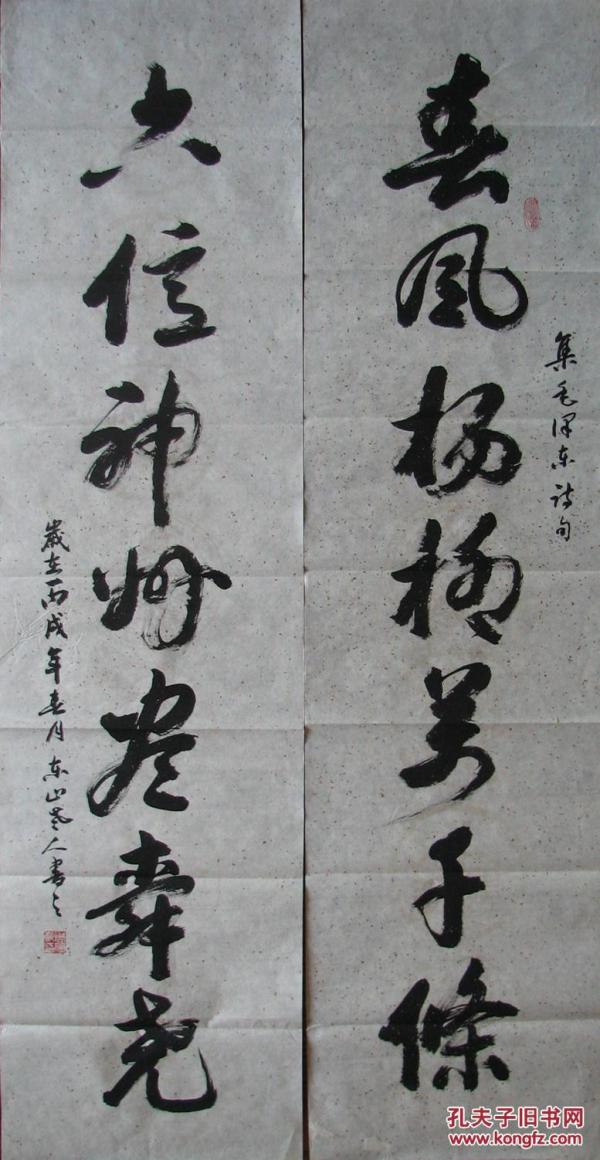 春风杨柳万千條
集毛泽东诗句
六億神州尽舜尧
歲在丙戌年春月东山老人書之
孔夫子旧书网
www.kongfz.com